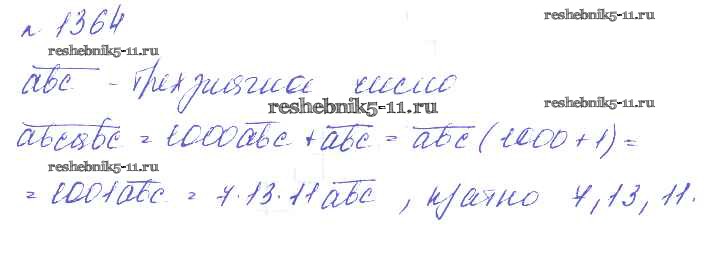 n 1364
reshebnik5-11.ru
abc - трехзначное число
reshebnik5-11.ru
reshebnik5-11.ru
abcabc = 1000abc + abc = abc (1000 + 1) =
reshebnik5-11.ru
= 1001abc = 7·13·11abc, кратно 7, 13, 11.